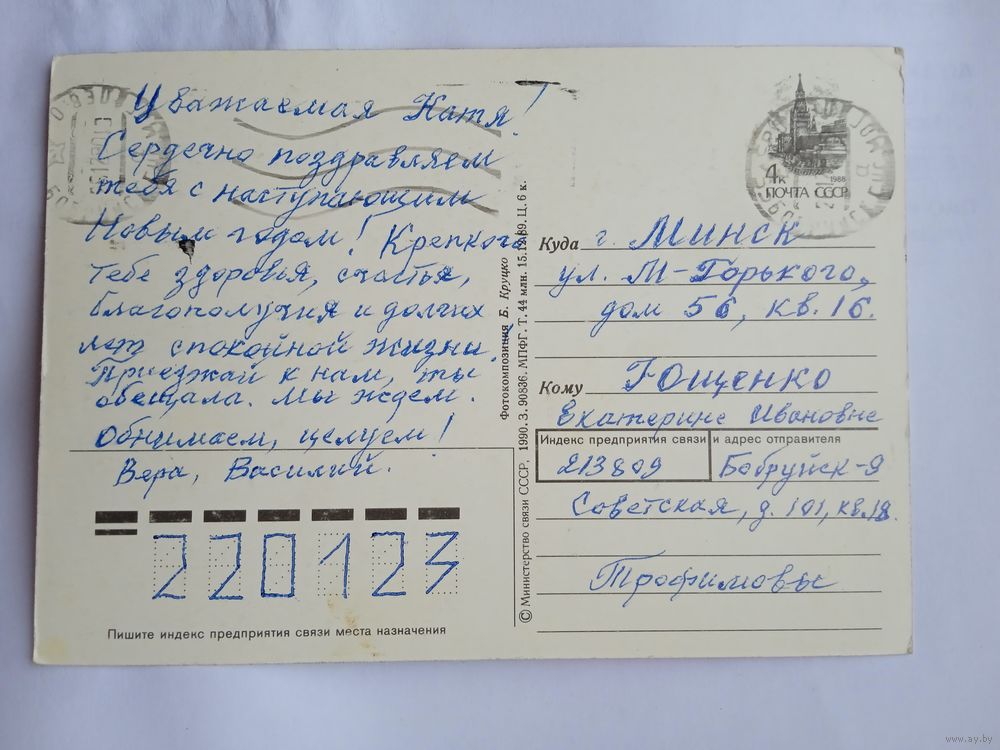 Уважаемая Катя!
Сердечно поздравляем
тебя с наступающим
Новым годом! Крепкого
тебе здоровья, счастья,
благополучия и долгих
лет спокойной жизни.
Приезжай к нам, ты
обещала. Мы ждем.
Обнимаем, целуем!
Вера, Василий.
220123
Пишите индекс предприятия связи места назначения
© Министерство связи СССР, 1990. З. 90836. МПФГ. Т. 44 млн. 15.12.89. Ц. 6 к.
Фотокомпозиция Б. Круцко
4к 1988
ПОЧТА СССР
Куда г. Минск
ул. М-Горького,
дом 56, кв. 16.
Кому Гощенко
Екатерине Ивановне
Индекс предприятия связи и адрес отправителя
213809 Бобруйск-9
Советская, д. 101, кв.18.
Трофимовы
www.ay.by